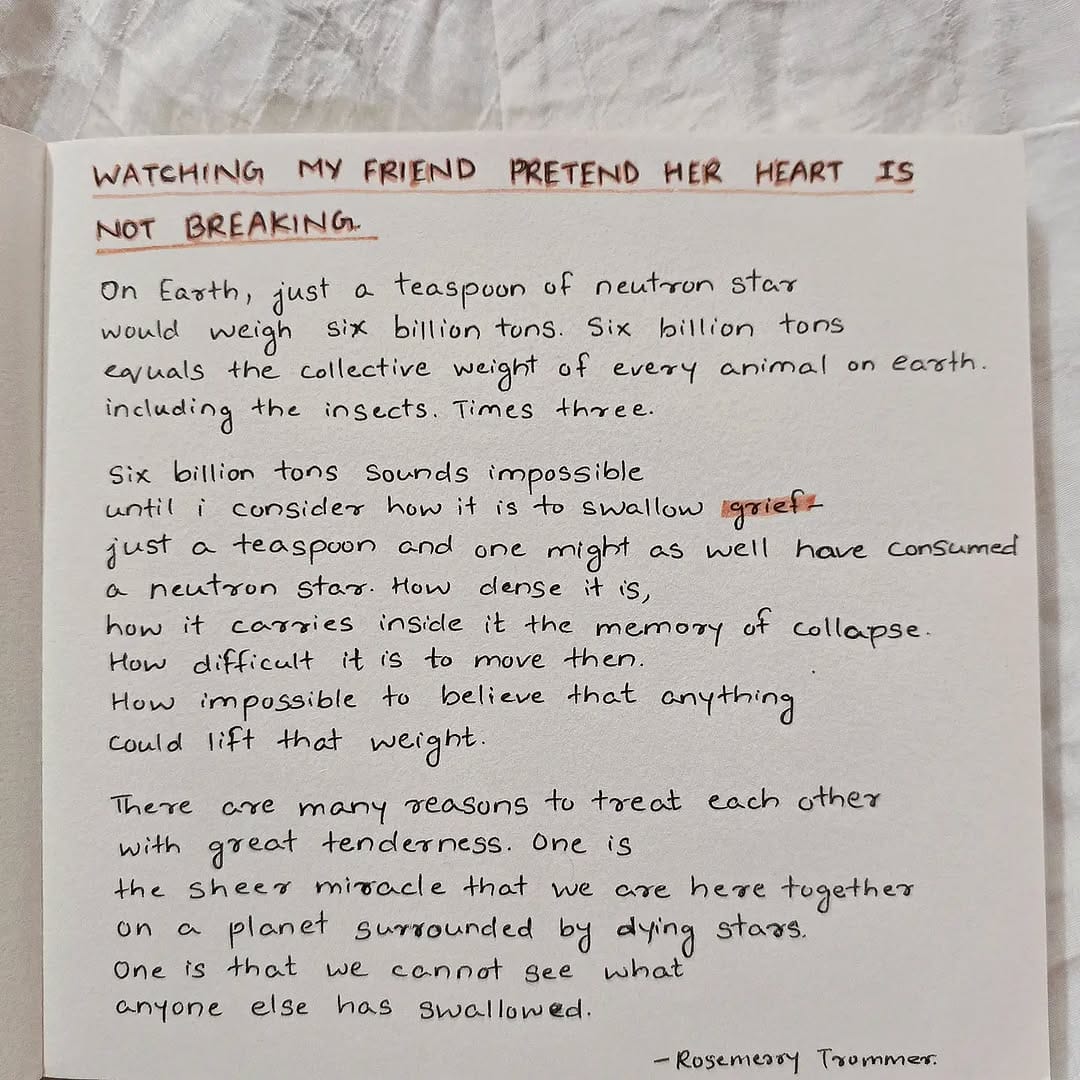 WATCHING MY FRIEND PRETEND HER HEART IS
NOT BREAKING.
On Earth, just a teaspoon of neutron star
would weigh six billion tons. Six billion tons
equals the collective weight of every animal on earth.
including the insects. Times three.
Six billion tons sounds impossible
until i consider how it is to swallow grief-
just a teaspoon and one might as well have consumed
a neutron star. How dense it is,
how it carries inside it the memory of collapse.
How difficult it is to move then.
How impossible to believe that anything
could lift that weight.
There are many reasons to treat each other
with great tenderness. One is
the sheer miracle that we are here together
on a planet surrounded by dying stars.
One is that we cannot see what
anyone else has swallowed.
-Rosemerry Trommer.